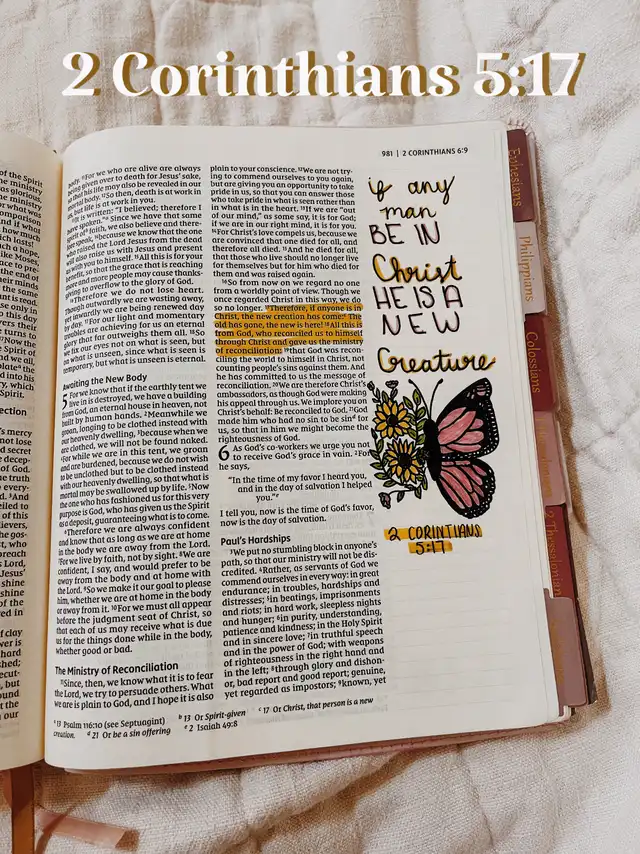 2 Corinthians 5:17
981 | 2 CORINTHIANS 6:9
body. ¹¹For we who are alive are always
being given over to death for Jesus' sake,
so that his life may also be revealed in our
mortal body. ¹²So then, death is at work in
us, but life is at work in you.
¹³It is written: "I believed; therefore I
have spoken." Since we have that same
spirit of faith, we also believe and there-
fore speak, ¹⁴because we know that the one
who raised the Lord Jesus from the dead
will also raise us with Jesus and present
us with you to himself. ¹⁵All this is for your
benefit, so that the grace that is reaching
more and more people may cause thanks-
giving to overflow to the glory of God.
¹⁶Therefore we do not lose heart.
Though outwardly we are wasting away,
yet inwardly we are being renewed day
by day. ¹⁷For our light and momentary
troubles are achieving for us an eternal
glory that far outweighs them all. ¹⁸So
we fix our eyes not on what is seen, but
on what is unseen, since what is seen is
temporary, but what is unseen is eternal.
Awaiting the New Body
5 For we know that if the earthly tent we
live in is destroyed, we have a building
from God, an eternal house in heaven, not
built by human hands. ²Meanwhile we
groan, longing to be clothed instead with
our heavenly dwelling, ³because when we
are clothed, we will not be found naked.
⁴For while we are in this tent, we groan
and are burdened, because we do not wish
to be unclothed but to be clothed instead
with our heavenly dwelling, so that what is
mortal may be swallowed up by life. ⁵Now
the one who has fashioned us for this very
purpose is God, who has given us the Spirit
as a deposit, guaranteeing what is to come.
⁶Therefore we are always confident
and know that as long as we are at home
in the body we are away from the Lord.
⁷For we live by faith, not by sight. ⁸We are
confident, I say, and would prefer to be
away from the body and at home with
the Lord. ⁹So we make it our goal to please
him, whether we are at home in the body
or away from it. ¹⁰For we must all appear
before the judgment seat of Christ, so
that each of us may receive what is due
us for the things done while in the body,
whether good or bad.
The Ministry of Reconciliation
¹¹Since, then, we know what it is to fear
the Lord, we try to persuade others. What
we are is plain to God, and I hope it is also
plain to your conscience. ¹²We are not try-
ing to commend ourselves to you again,
but are giving you an opportunity to take
pride in us, so that you can answer those
who take pride in what is seen rather than
in what is in the heart. ¹³If we are "out
of our mind," as some say, it is for God;
if we are in our right mind, it is for you.
¹⁴For Christ's love compels us, because we
are convinced that one died for all, and
therefore all died. ¹⁵And he died for all,
that those who live should no longer live
for themselves but for him who died for
them and was raised again.
¹⁶So from now on we regard no one
from a worldly point of view. Though we
once regarded Christ in this way, we do
so no longer. ¹⁷Therefore, if anyone is in
Christ, the new creation has come: The
old has gone, the new is here! ¹⁸All this is
from God, who reconciled us to himself
through Christ and gave us the ministry
of reconciliation: ¹⁹that God was recon-
ciling the world to himself in Christ, not
counting people's sins against them. And
he has committed to us the message of
reconciliation. ²⁰We are therefore Christ's
ambassadors, as though God were making
his appeal through us. We implore you on
Christ's behalf: Be reconciled to God. ²¹God
made him who had no sin to be sin for
us, so that in him we might become the
righteousness of God.
6 As God's co-workers we urge you not
to receive God's grace in vain. ²For
he says,
"In the time of my favor I heard you,
and in the day of salvation I helped
you."
I tell you, now is the time of God's favor,
now is the day of salvation.
Paul's Hardships
³We put no stumbling block in anyone's
path, so that our ministry will not be dis-
credited. ⁴Rather, as servants of God we
commend ourselves in every way: in great
endurance; in troubles, hardships and
distresses; ⁵in beatings, imprisonments
and riots; in hard work, sleepless nights
and hunger; ⁶in purity, understanding,
patience and kindness; in the Holy Spirit
and in sincere love; ⁷in truthful speech
and in the power of God; with weapons
of righteousness in the right hand and
in the left; ⁸through glory and dishon-
or, bad report and good report; genuine,
yet regarded as impostors; ⁹known, yet
13 Psalm 116:10 (see Septuagint) b 13 Or Spirit-given c 17 Or Christ, that person is a new
creation. d 21 Or be a sin offering e 2 Isaiah 49:8
if any
man
BE IN
Christ
HE IS A
NEW
Creature
2 CORINTHIANS
5:17
Ephesians
Philippians
Colossians
2 Thessalonians